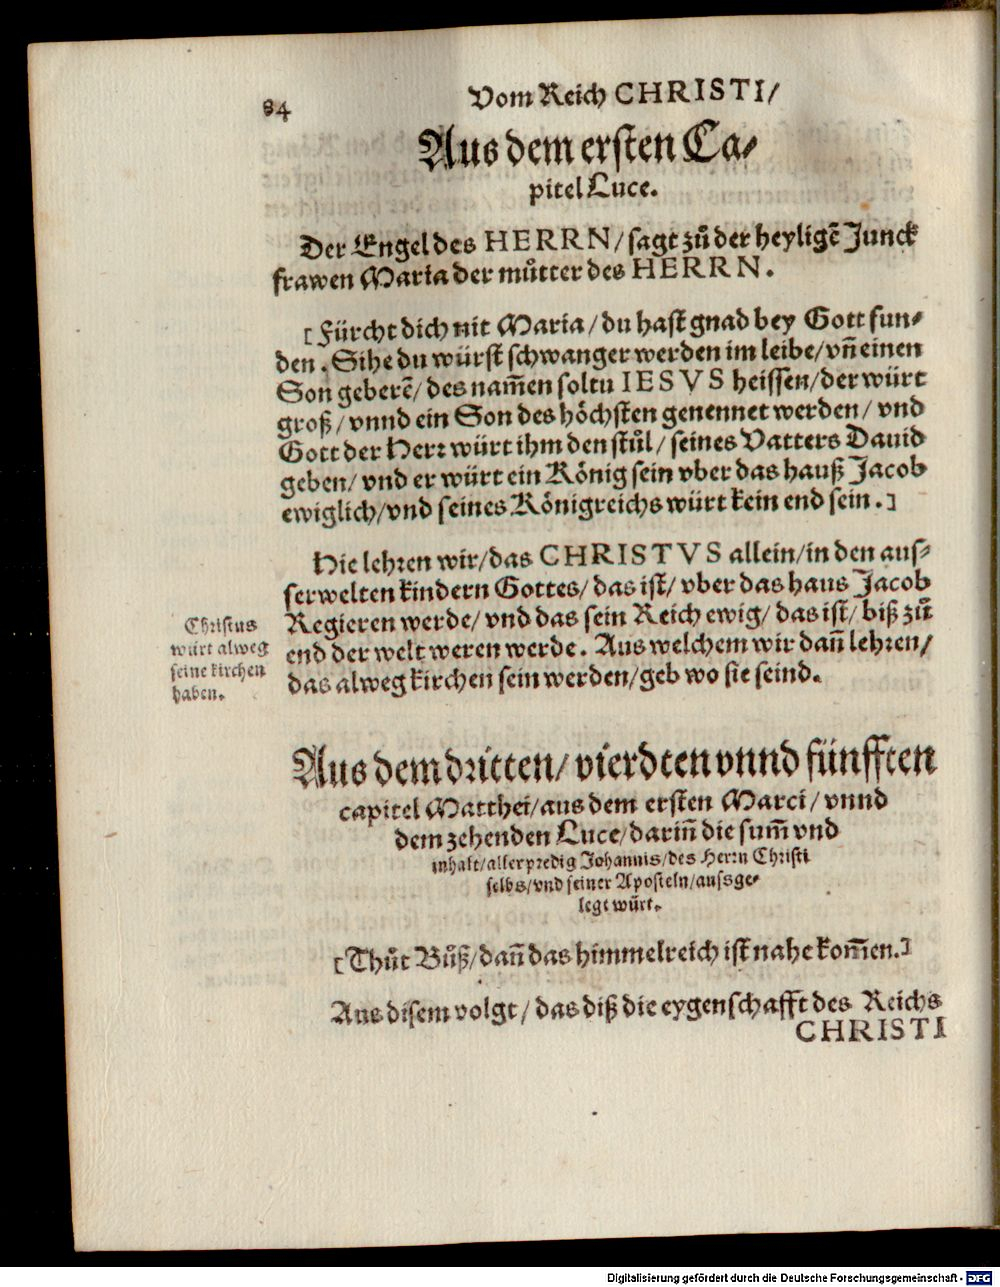 84
Vom Reich CHRISTI/
Aus dem ersten Ca⸗
pitel Luce.
Der Engel des HERRN/ sagt zů der heyligē Junck
frawen Maria der můtter des HERRN.
[Fürcht dich nit Maria/ du hast gnad bey Gott fun⸗
den. Sihe du würst schwanger werden im leibe/ vn̄ einen
Son geberē/ des nam̄en soltu IESVS heissen/ der würt
groß/ vnnd ein Son des höchsten genennet werden/ vnd
Gott der Herr würt ihm den stůl/ seines Vatters Dauid
geben/ vnd er würt ein König sein vber das hauß Jacob
ewiglich/ vnd seines Königreichs würt kein end sein.]
Hie lehren wir/ das CHRISTVS allein/ in den aus⸗
serwelten kindern Gottes/ das ist/ vber das haus Jacob
Regieren werde/ vnd das sein Reich ewig/ das ist/ biß zů
end der welt weren werde. Aus welchem wir dan̄ lehren/
das alweg kirchen sein werden/ geb wo sie seind.
Christus
würt alweg
seine kirchen
haben.
Aus dem dritten/ vierdten vnnd fünfften
capitel Matthei/ aus dem ersten Marci/ vnnd
dem zehenden Luce/ darin̄ die sum̄ vnd
inhalt/ aller predig Johannis/ des Herrn Christi
selbs/ vnd seiner Aposteln/ aussge⸗
legt würt.
[Thůt Bůß/ dan̄ das himmelreich ist nahe kom̄en.]
Aus disem volgt/ das diß die eygenschafft des Reichs
CHRISTI
Digitalisierung gefördert durch die Deutsche Forschungsgemeinschaft - DFG